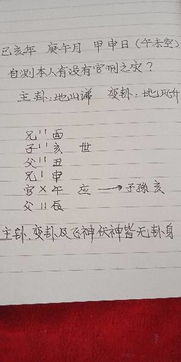 己亥年 庚午月 甲申日(午未空)
自测本人有没有官刑之灾?
主卦:地山谦 变卦:地风升
兄〃酉
子〃亥 世
父〃丑
兄丨申
官×午 应 → 子孙亥
父〃辰
主卦、变卦及飞神伏神皆无卦身